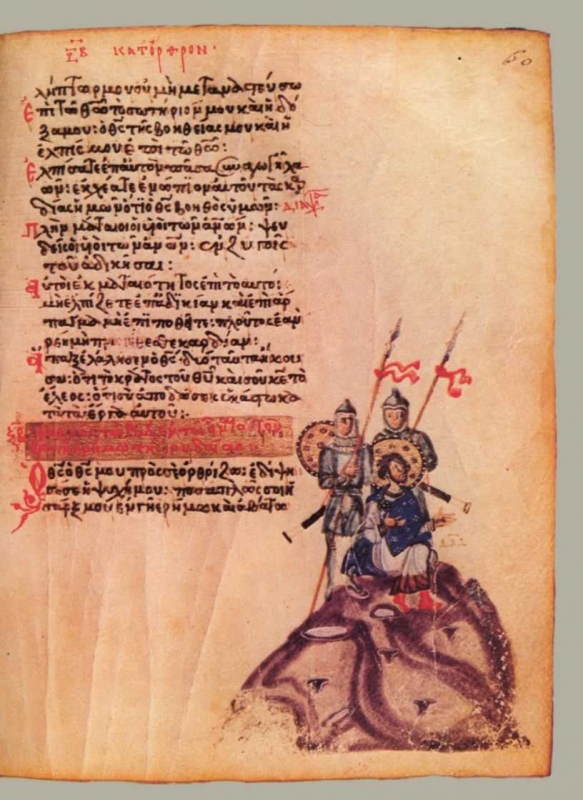 ΞΒ ΚΑΤΟΡΘΡΟΝ· 60
λήπτωρ μου οὐ μὴ μεταναστεύσω
Ἐπὶ τῶ θῶ τὸ σωτήριόν μου καὶ ἡ δό
ξα μου: ὁ θς τῆς βοηθείας μου καὶ ἡ
ἐλπίς μου ἐπὶ τῶ θῶ:
Ἐλπίσατε ἐπ αὐτὸν πᾶσα συναγωγὴ λα
ῶν: ἐκχέατε ἐνώπιον αὐτοῦ τὰς καρ
δίας ἡμῶν ὅτι ὁ θς βοηθὸς ἡμῶν: διάψ
Πλὴν μάταιοι οἱ υἱοὶ τῶν ἀνων: ψευ
δεῖς οἱ υἱοὶ τῶν ἀνων: ἐν ζυγοῖς
τοῦ ἀδικῆσαι:
αὐτοὶ ἐκ ματαιότητος ἐπὶ τὸ αὐτό:
μὴ ἐλπίζετε ἐπ ἀδικίαν καὶ ἐπὶ ἁρ
παγμα μὴ ἐπιποθεῖτε: πλοῦτος ἐὰν
ῥέη μὴ καρδίαν:
ἅπαξ ἐλάλησεν ὁ θς δύο ταῦτα ἤκου
σα: ὅτι τὸ κράτος τοῦ θυ καὶ σοῦ κε τὸ
ἔλεος: ὅτι σὺ ἀποδώσεις ἑκάστω κα
τὰ τὰ ἔργα αὐτοῦ:
Ὁ θς ὁ θς μου πρὸς σὲ ὀρθρίζω: ἐδίψη
σέ σοι ἡ ψυχή μου: ποσαπλῶς σοι ἡ
σάρξ μου ἐν γῆ ἐρήμω καὶ ἀβάτω